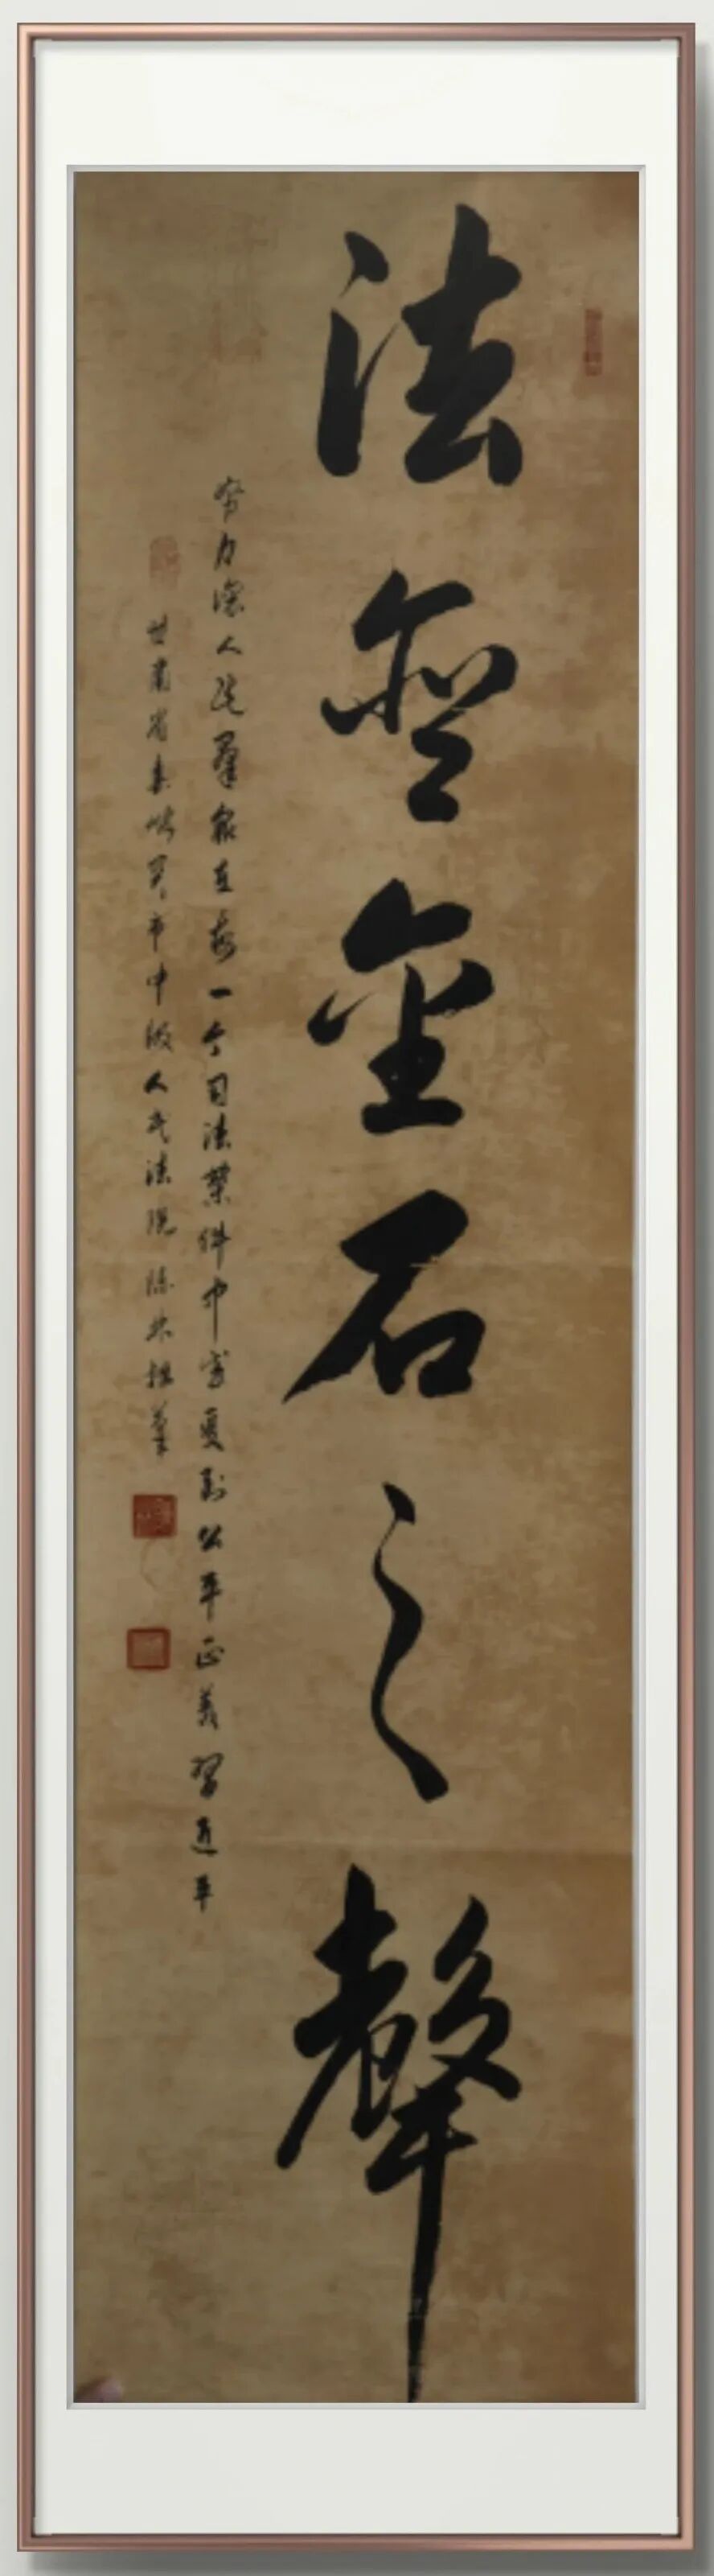 法金石之聲
努力讓人民羣眾在每一个司法案件中感受到公平正義習近平
甘肅省嘉峪関市中級人民法院陳